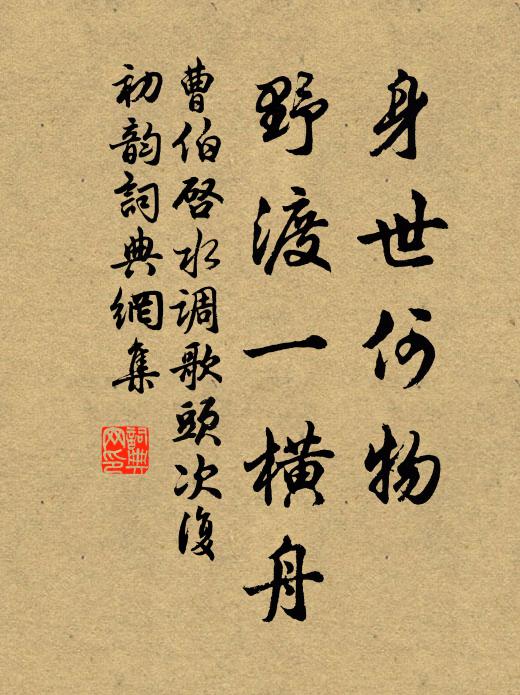 身世何物
野渡一橫舟
曹伯啓水調歌頭次復
初韵詞典網集
詞典网印